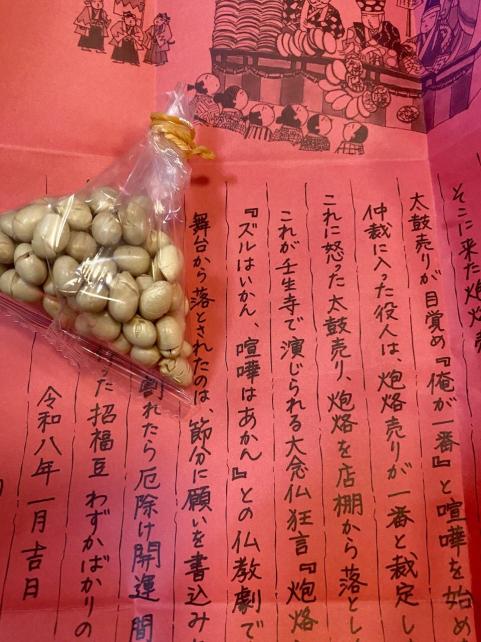 そこに来た炮烙売
太鼓売りが目覚め『俺が一番』と喧嘩を始め
仲裁に入った役人は、炮烙売りが一番と裁定し
これに怒った太鼓売り、炮烙を店棚から落とし
これが壬生寺で演じられる大念仏狂言『炮烙
『ズルはいかん、喧嘩はあかん』との仏教劇で
舞台から落とされたのは、節分に願いを書込み
割れたら厄除け開運
った招福豆 わずかばかりの
令和八年一月吉日